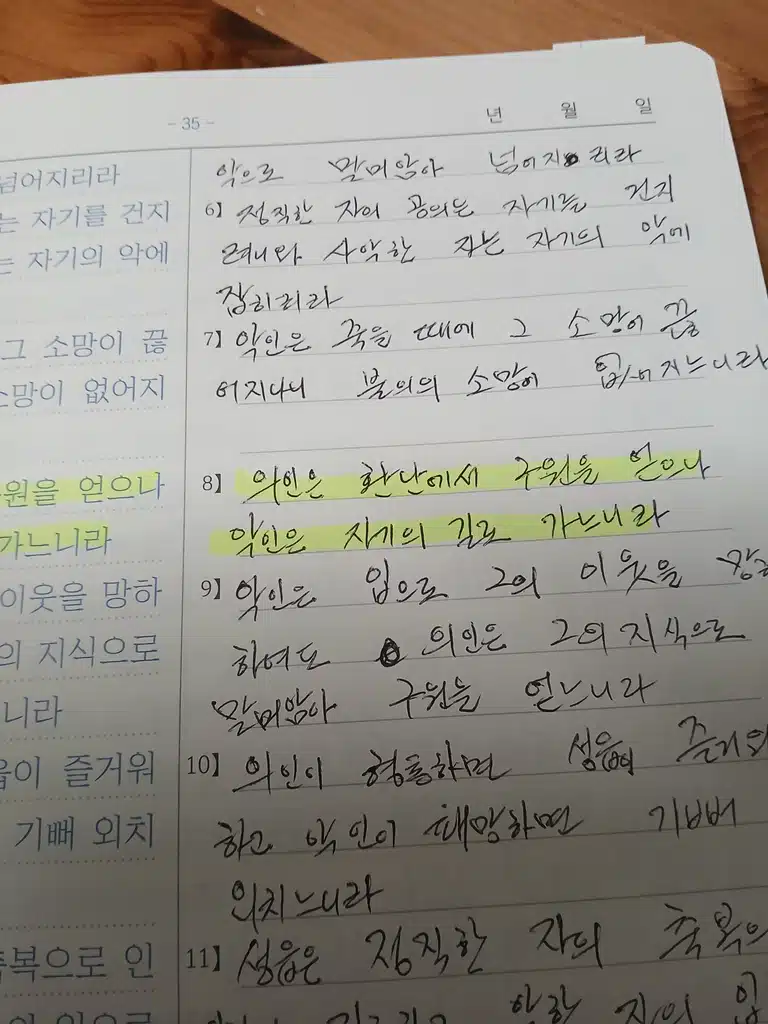 - 35 -
년 월 일
넘어지리라
는 자기를 건지
는 자기의 악에
그 소망이 끊
소망이 없어지
원을 얻으나
가느니라
이웃을 망하
의 지식으로
니라
읍이 즐거워
기뻐 외치
복으로 인
악으로 말미암아 넘어지리라
6】 정직한 자의 공의는 자기를 건지
려니와 사악한 자는 자기의 악에
잡히리라
7】 악인은 죽을 때에 그 소망이 끊
어지나니 불의의 소망이 없어지느니라
8】 의인은 환난에서 구원을 얻으나
악인은 자기의 길로 가느니라
9】 악인은 입으로 그의 이웃을 망
하여도 의인은 그의 지식으로
말미암아 구원을 얻느니라
10】 의인이 형통하면 성읍이 즐거워
하고 악인이 패망하면 기뻐
외치느니라
11】 성읍은 정직한 자의 축복으
악한 자의 입